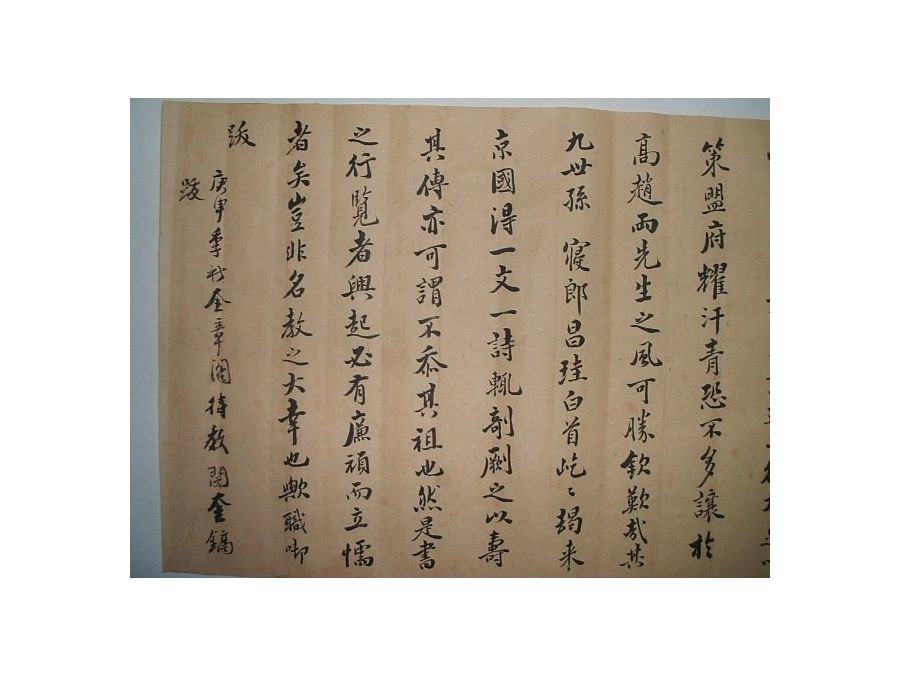 策盟府耀汗青恐不多讓於
高趙兩先生之風可勝欽歎哉其
九世孫 寢郎昌 白首屹〻朅来
京國得一文一詩輒剞劂之以壽
其傳亦可謂不忝其祖也然是書
之行覧者興起必有廉頑而立懦
者矣豈非名教之大幸也歟職
跋
庚申季秋奎章閣待教閔奎鎬
跋